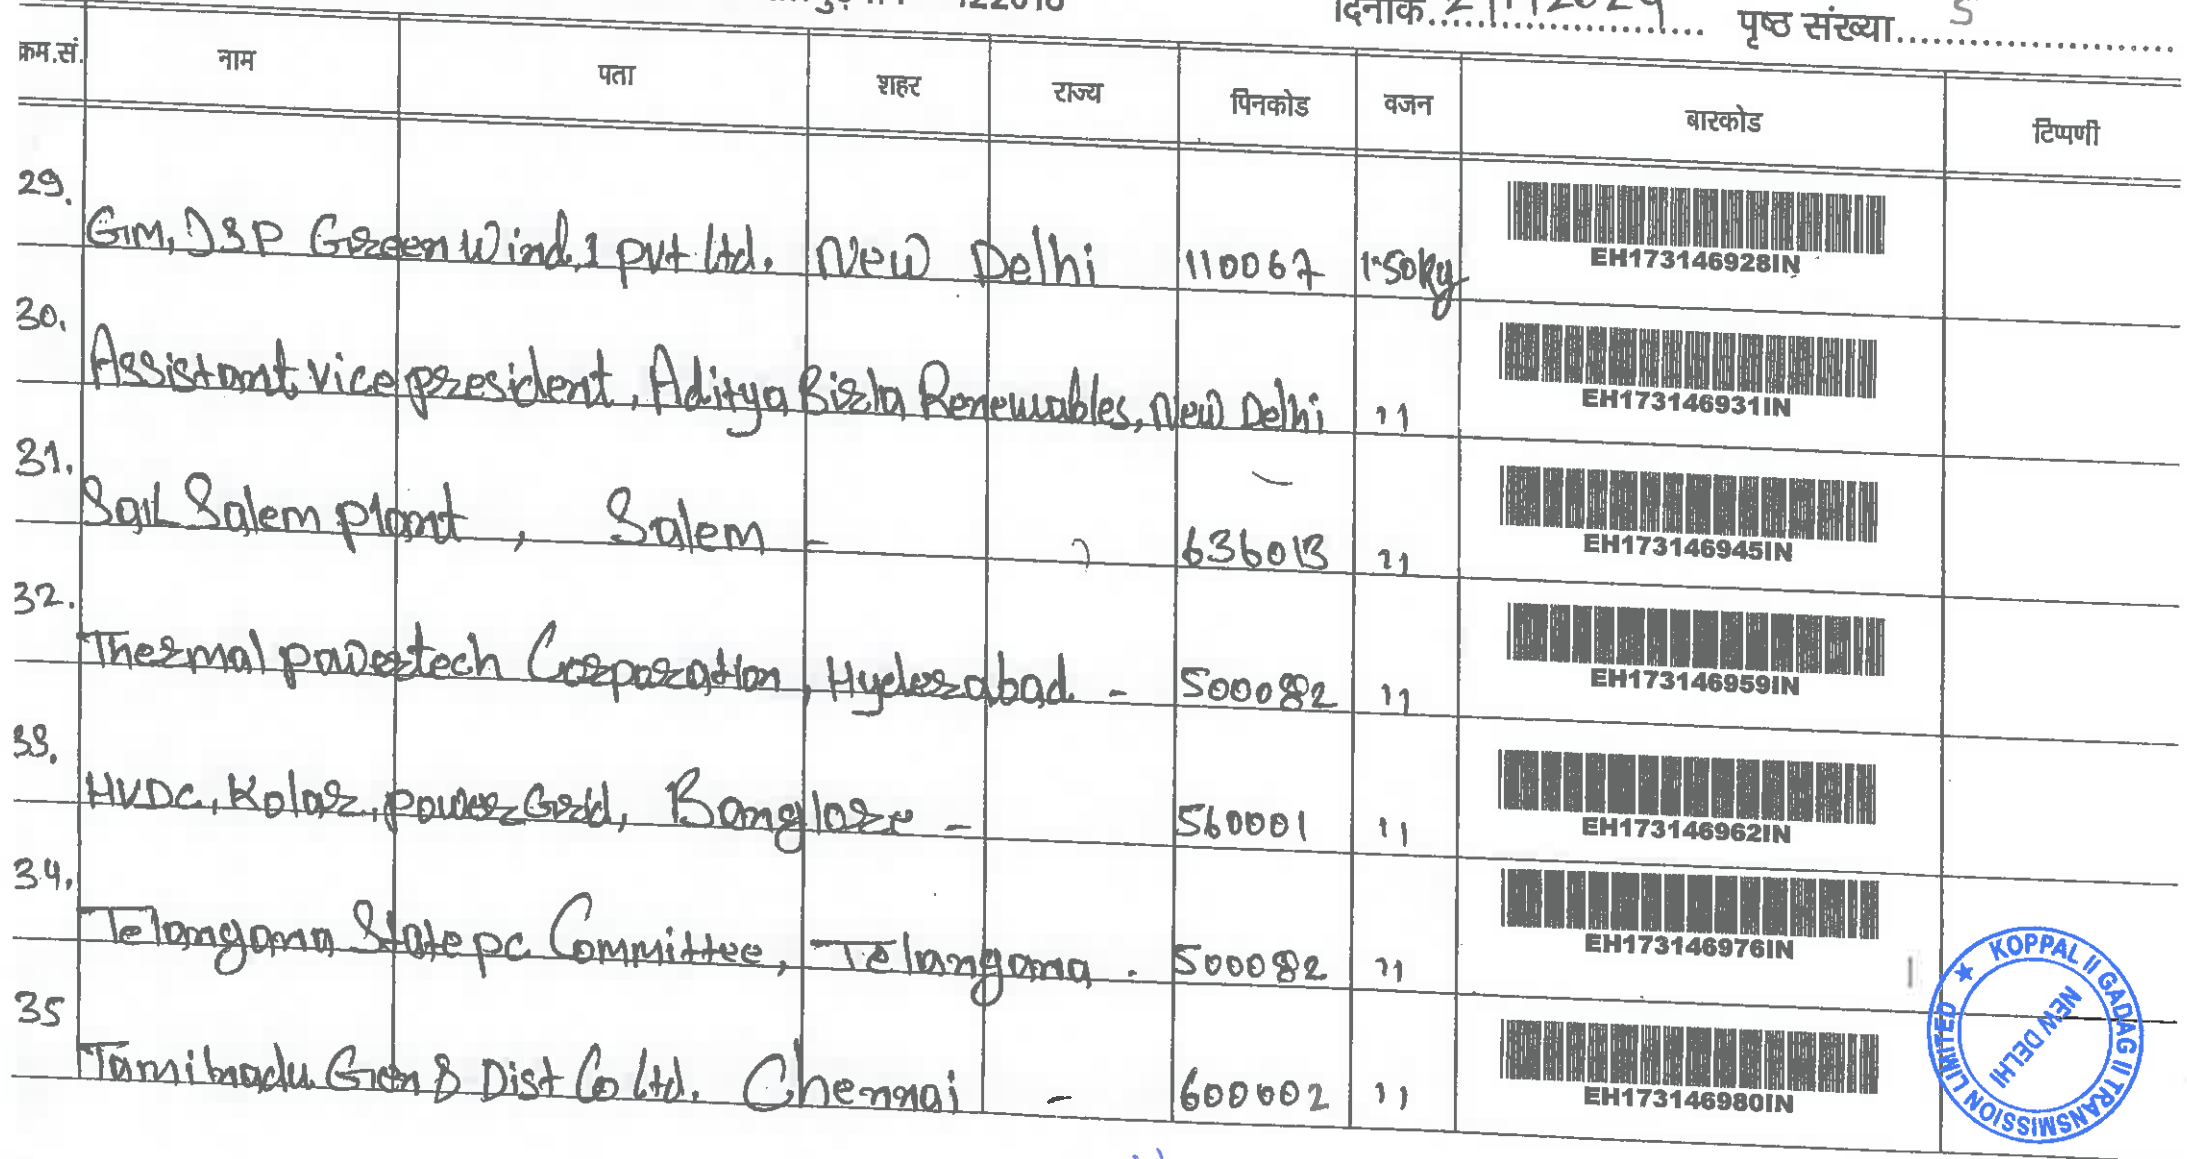 122016 दिनांक पृष्ठ संख्या 5
क्रम.सं. नाम पता शहर राज्य पिनकोड वजन बारकोड टिप्पणी
29. GM, JSP Green Wind, 1 Pvt Ltd. New Delhi 110067 1.50kg EH173146928IN
30. Assistant vice president, Aditya Birla Renewables, New Delhi " EH173146931IN
31. Sail Salem plant, Salem - 636013 " EH173146945IN
32. Thermal powertech Corporation, Hyderabad - 500082 " EH173146959IN
33. HVDC, Kolar, power Grid, Banglore - 560001 " EH173146962IN
34. Telangana State pc Committee, Telangana. 500082 " EH173146976IN
35 Tamilnadu Gen & Dist Co Ltd. Chennai - 600002 " EH173146980IN
KOPPAL II GADAG II TRANSMISSION LIMITED
NEW DELHI